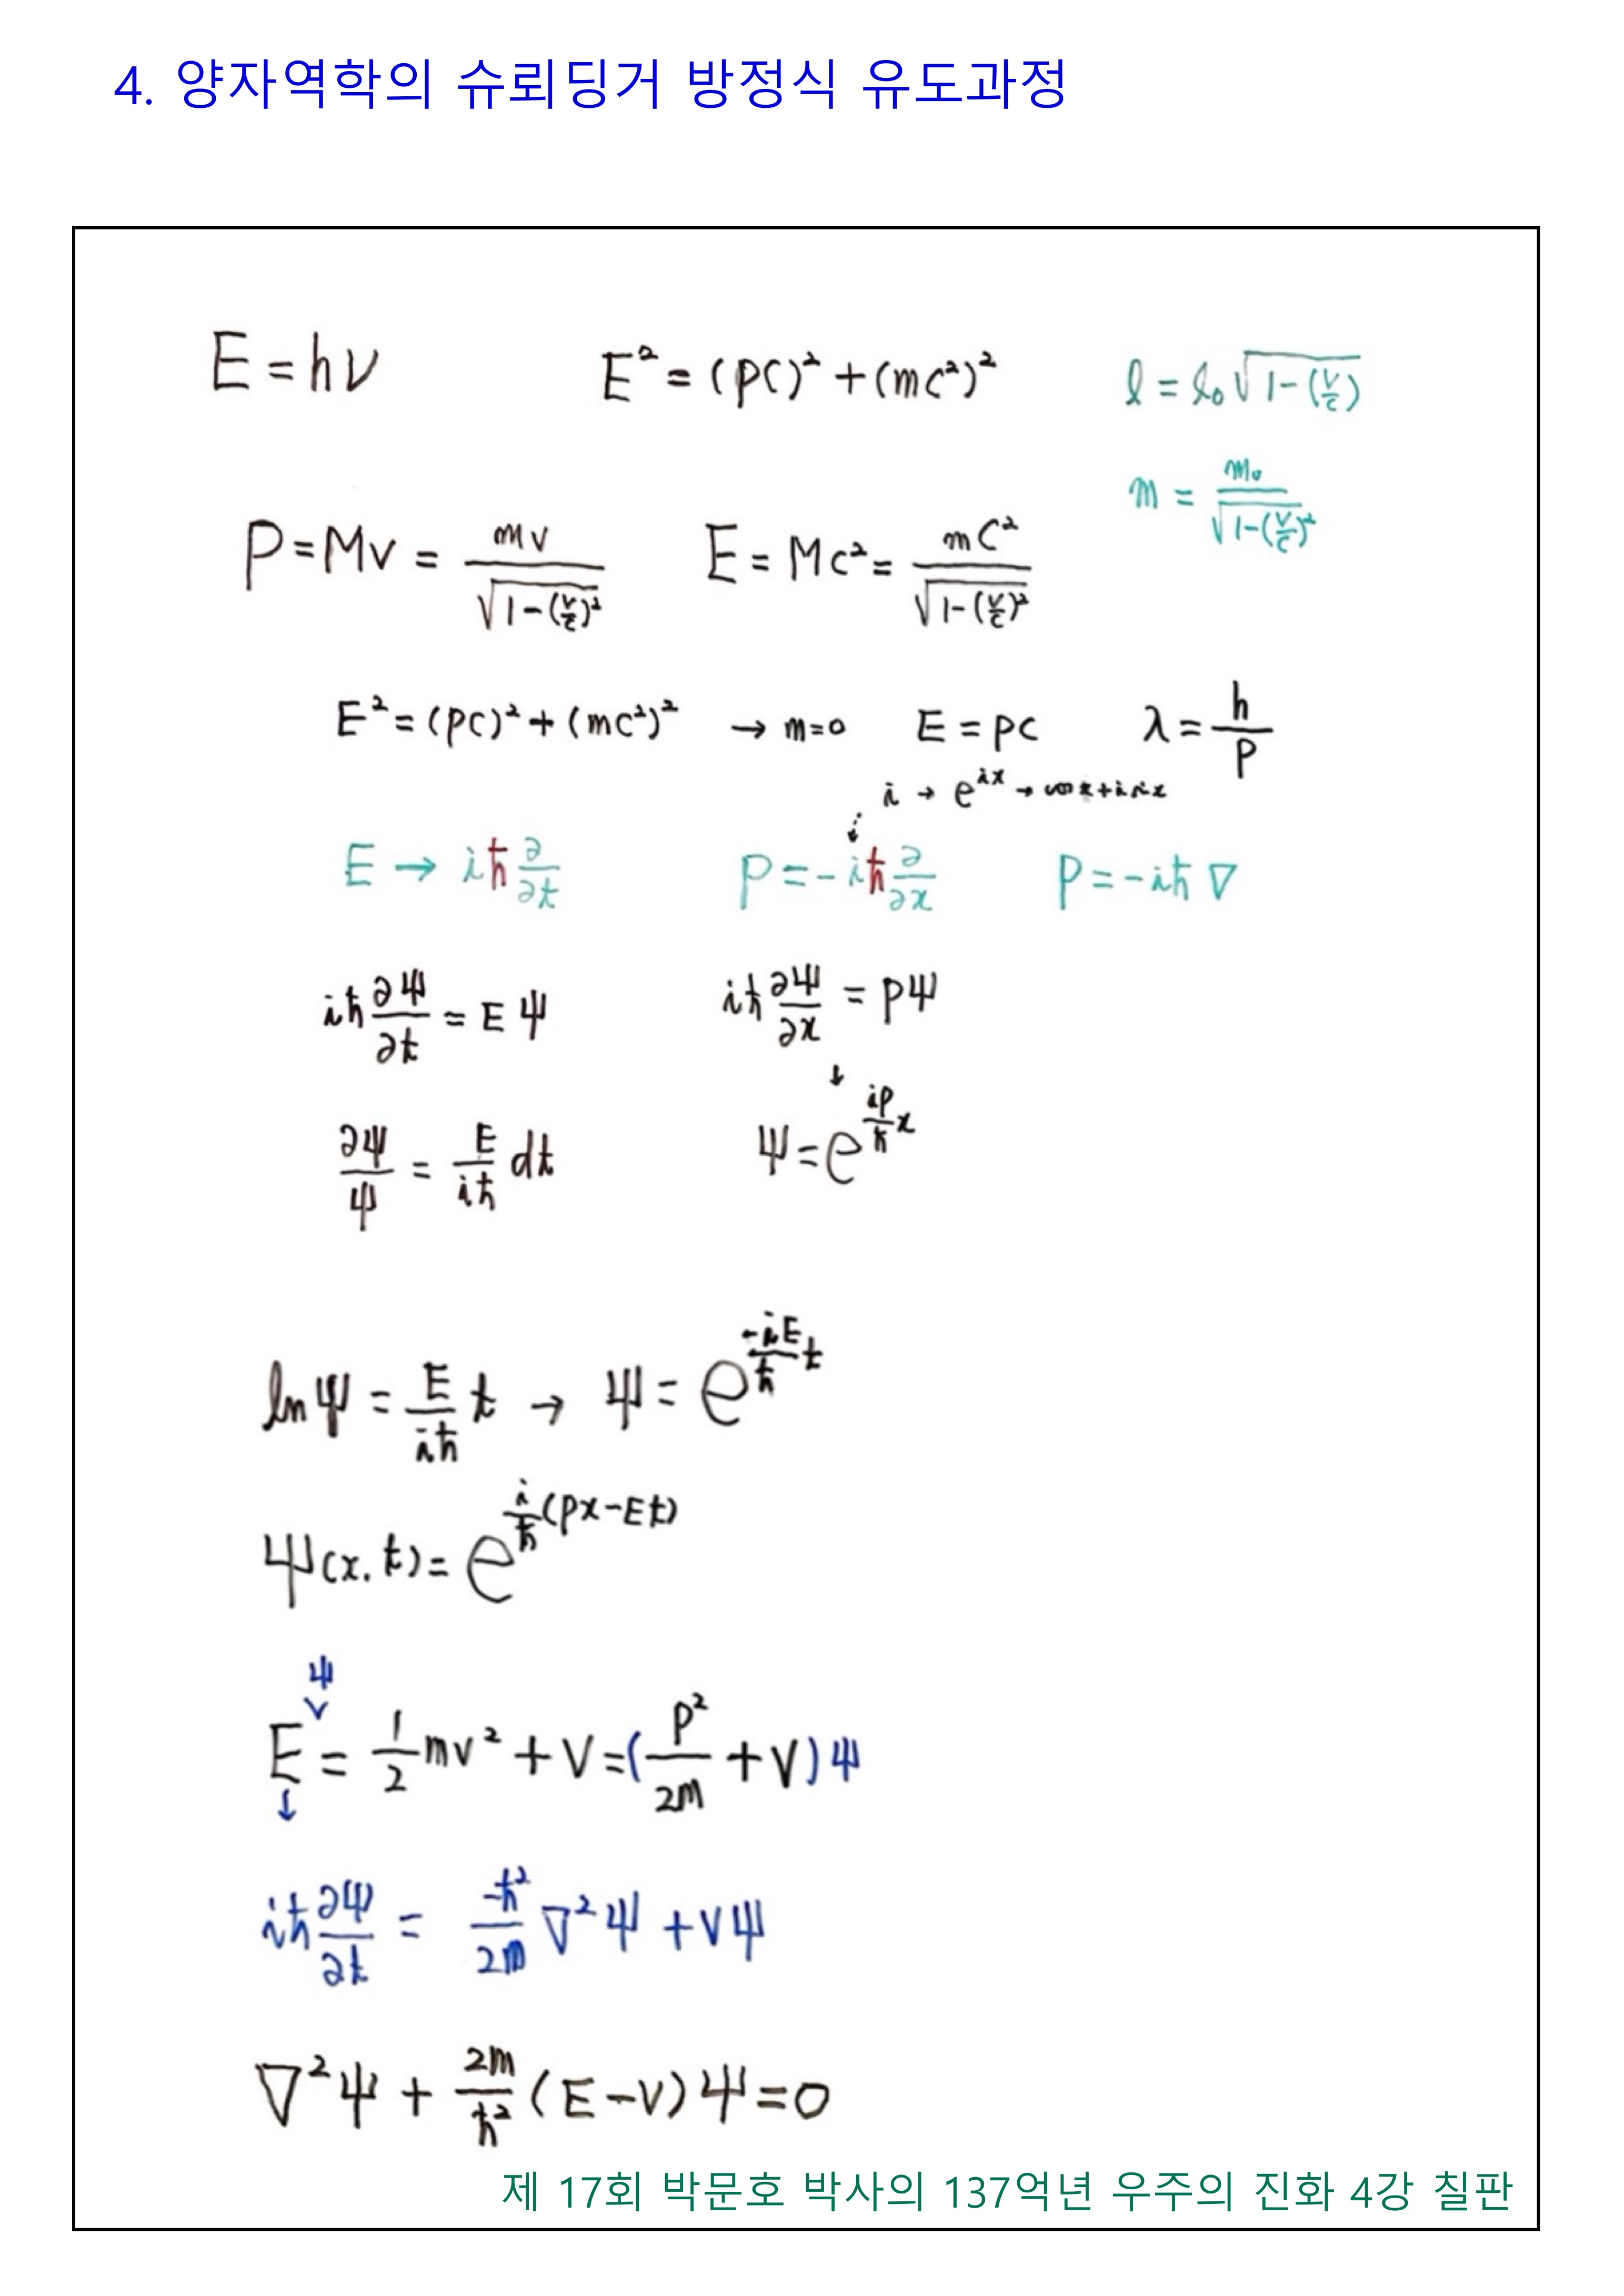 4. 양자역학의 슈뢰딩거 방정식 유도과정
E = hν
E² = (pc)² + (mc²)²
l = l₀√(1-(v/c))
m = m₀/√(1-(v/c)²)
P = Mv = mv/√(1-(v/c)²)
E = Mc² = mC²/√(1-(v/c)²)
E² = (pc)² + (mc²)² → m=0 E = pc λ = h/P
i → e^(ix) → cos x + i sin x
E → iħ ∂/∂t
P = -iħ ∂/∂x
P = -iħ ∇
iħ ∂Ψ/∂t = E Ψ
iħ ∂Ψ/∂x = PΨ
↓
∂Ψ/Ψ = E/iħ dt
Ψ = e^(ip/ħ x)
ln Ψ = E/iħ t → Ψ = e^(-iE/ħ t)
Ψ(x.t) = e^(i/ħ (px-Et))
Ψ
E = 1/2 mv² + V = (P²/2m + V)Ψ
↓
iħ ∂Ψ/∂t = -ħ²/2m ∇²Ψ + VΨ
∇²Ψ + 2m/ħ² (E-V)Ψ = 0
제 17회 박문호 박사의 137억년 우주의 진화 4강 칠판